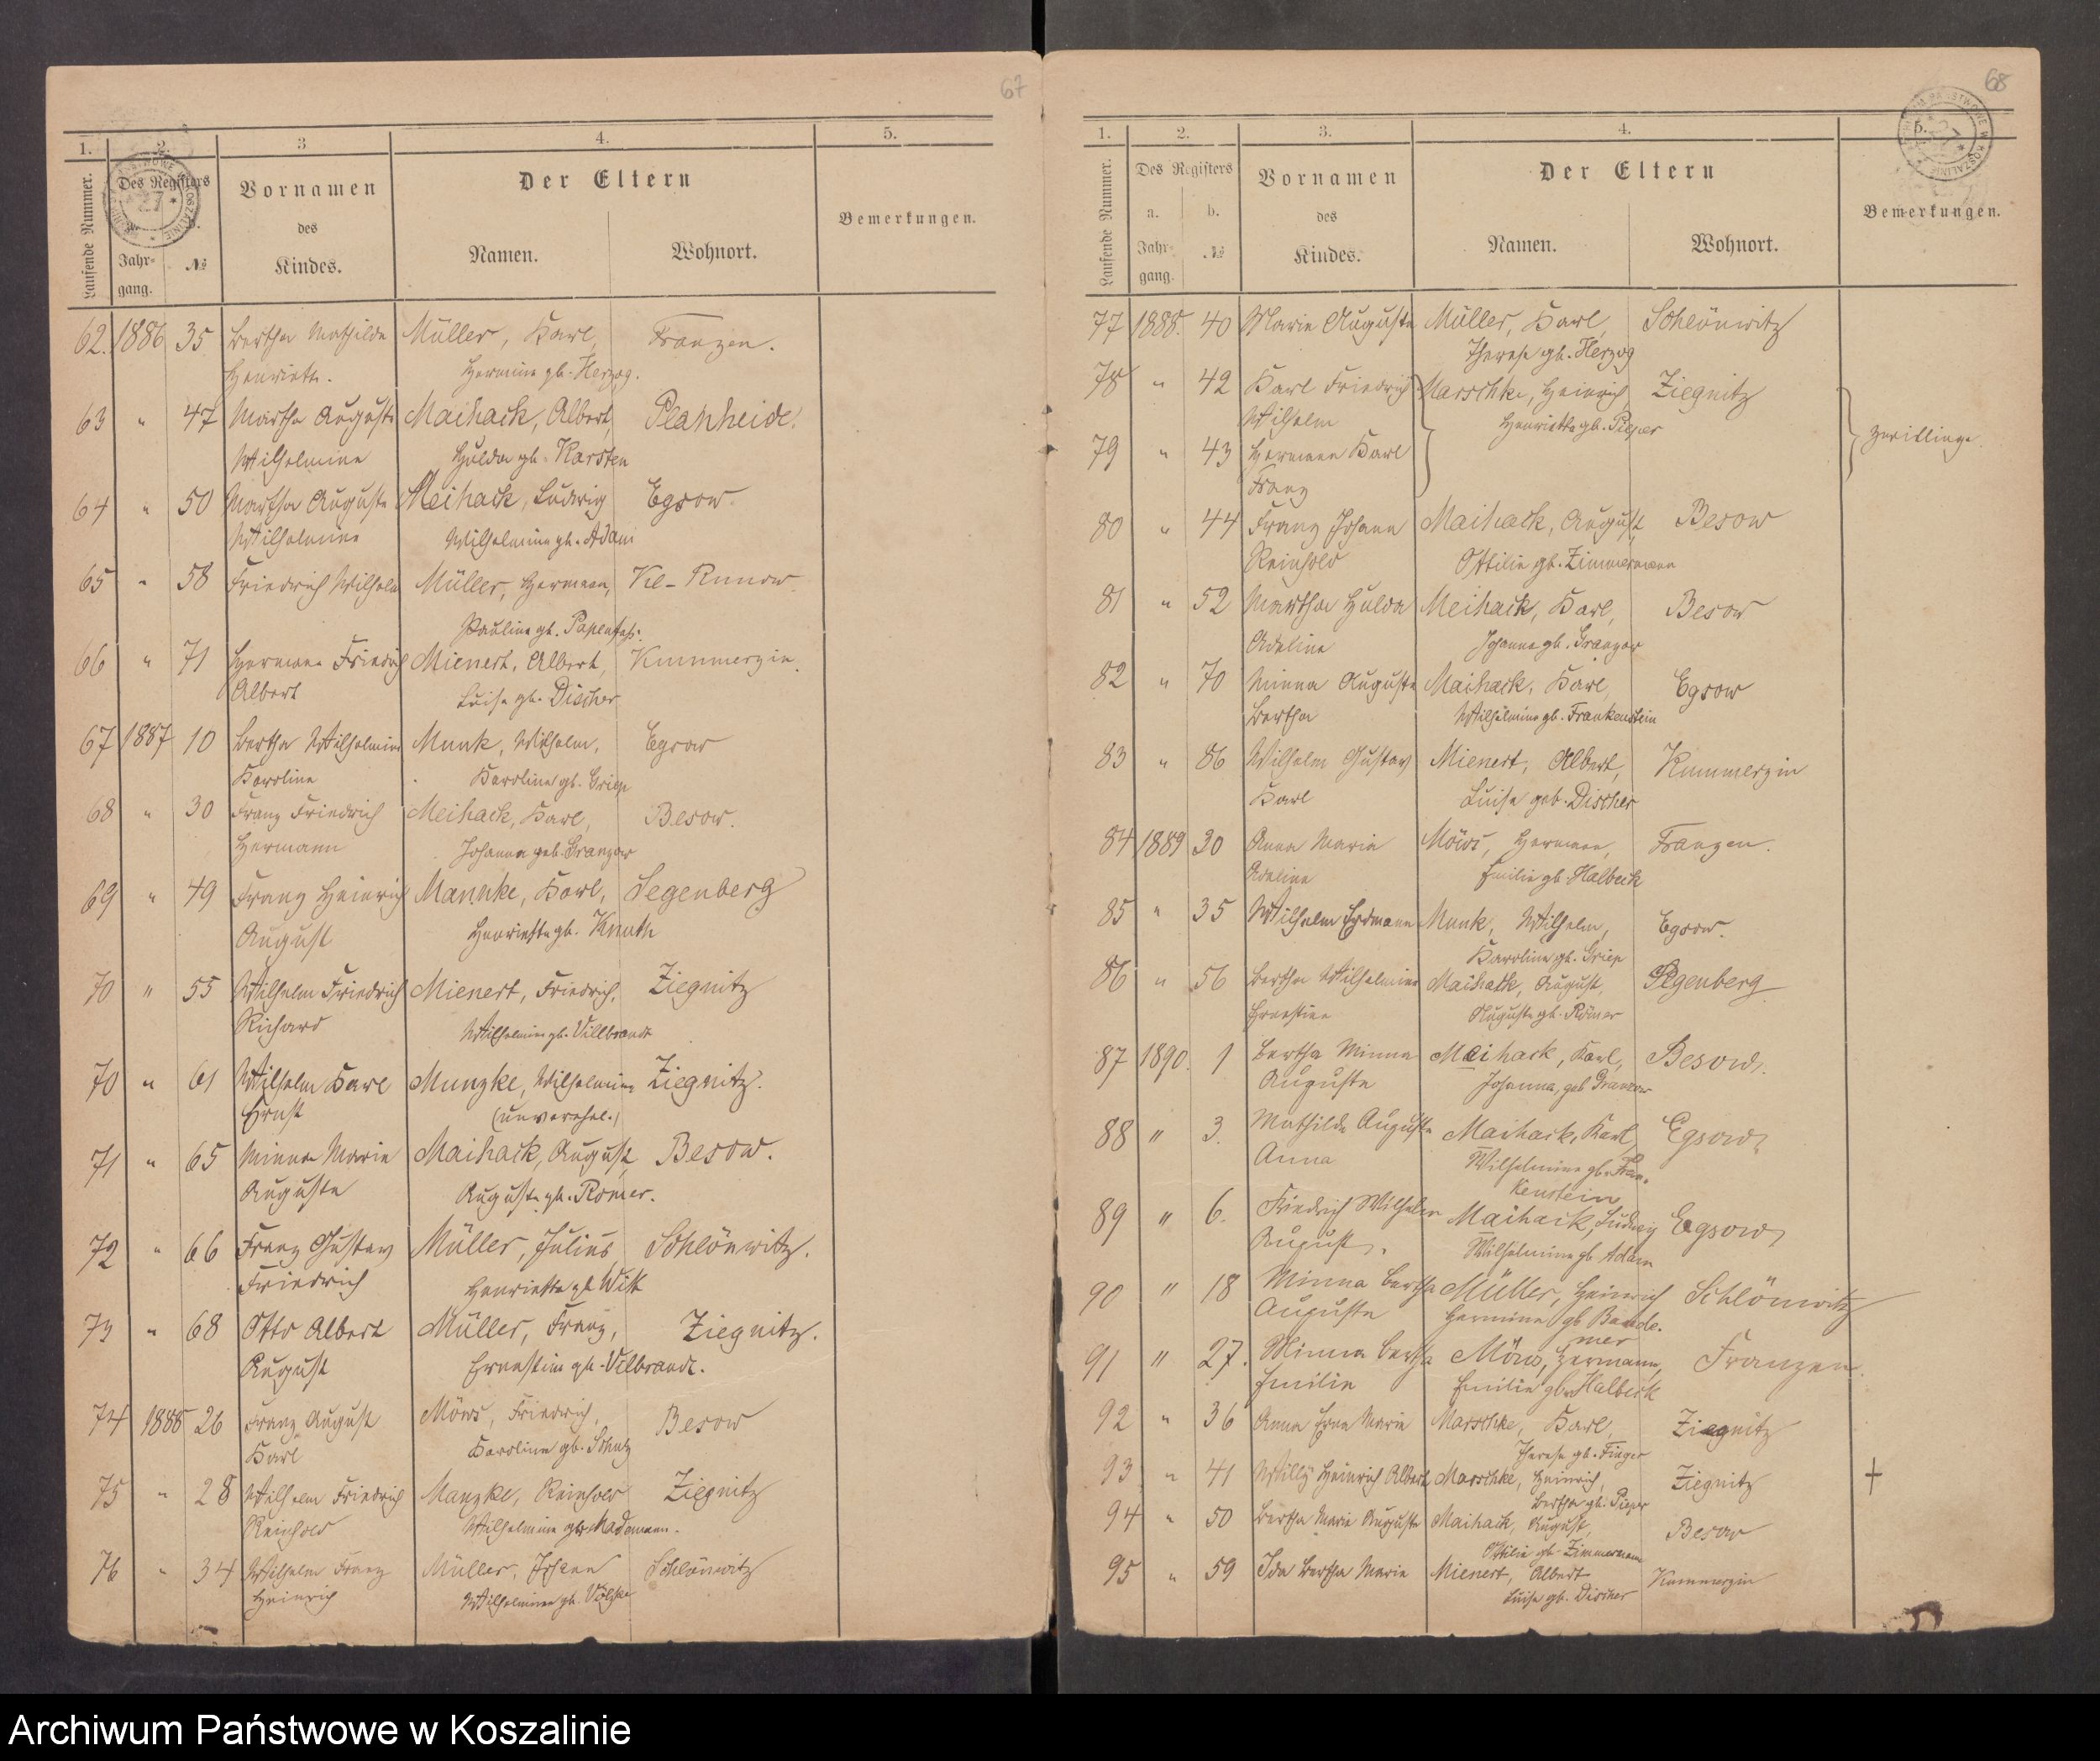 67
1. 2. 3 4. 5.
Laufende Nummer. Des Registers Vornamen des Kindes. Der Eltern Bemerkungen.
Jahrgang. № Namen. Wohnort.
62. 1886 35 Bertha Mathilde Müller, Karl, Franzen.
Henriette. Hermine gb. Herzog.
63 " 47 Martha Auguste Maihack, Albert, Planheide.
Wilhelmine Hulda gb. Karsten
64 " 50 Martha Auguste Meihack, Ludwig Egsow.
Wilhelmine Wilhelmine gb. Adam
65 " 58 Friedrich Wilhelm Müller, Hermann, Kl-Runow.
Pauline gb. Papenfuß.
66 " 71 Hermann Friedrich Mienert, Albert, Kummerzin.
Albert Luise gb. Discher
67 1887 10 Bertha Wilhelmine Munk, Wilhelm, Egsow
Karoline Karoline gb. Griep
68 " 30 Franz Friedrich Meihack, Karl, Besow.
Hermann Johanna geb. Granzow
69 " 49 Franz Heinrich Mannke, Karl, Segenberg
August Henriette gb. Knuth
70 " 55 Wilhelm Friedrich Mienert, Friedrich, Ziegnitz
Richard Wilhelmine gb. Villbrandt
70 " 61 Wilhelm Karl Munzke, Wilhelmine Ziegnitz.
Ernst (unverehel.)
71 " 65 Minna Marie Maihack, August, Besow.
Auguste Auguste gb. Römer.
72 " 66 Franz Gustav Müller, Julius Schlönwitz.
Friedrich Henriette gb Witt
73 " 68 Otto Albert Müller, Franz, Ziegnitz.
August Ernestine gb. Vilbrandt.
74 1888 26 Franz August Möws, Friedrich, Besow
Karl Karoline gb. Schulz
75 " 28 Wilhelm Friedrich Manzke, Reinhold Ziegnitz
Reinhold Wilhelmine gb. Mademann.
76 " 34 Wilhelm Franz Müller, Johann Schlönwitz
Heinrich Wilhelmine gb.
68
1. 2. 3. 4. 5.
Laufende Nummer. Des Registers Vornamen des Kindes. Der Eltern Bemerkungen.
a. b.
Jahrgang. № Namen. Wohnort.
77 1888. 40 Marie Auguste Müller, Karl, Schlönwitz
Therese gb. Herzog
78 " 42 Karl Friedrich Marschke, Heinrich, Ziegnitz
Wilhelm Henriette gb. Pieper
Zwillinge.
79 " 43 Hermann Karl
Franz
80 " 44 Franz Johann Maihack, August, Besow
Reinhold Ottilie gb. Zimmermann
81 " 52 Martha Hulda Meihack, Karl, Besow
Adeline Johanna gb. Granzow
82 " 70 Minna Auguste Maihack, Karl, Egsow
Bertha Wilhelmine gb. Frankenstein
83 " 86 Wilhelm Gustav Mienert, Albert, Kummerzin
Karl Luise geb. Discher
84 1889 30 Anna Maria Möws, Hermann, Franzen.
Adeline Emilie gb. Halbeck
85 " 35 Wilhelm Erdmann Munk, Wilhelm, Egsow.
Karoline gb. Griep
86 " 56 Bertha Wilhelmine Maihack, August, Segenberg
Ernestine Auguste gb. Römer
87 1890. 1 Bertha Minna Meihack, Karl, Besow.
Auguste Johanna, geb Granzow
88 " 3. Mathilde Auguste Maihack, Karl, Egsow
Anna Wilhelmine gb. Fran-
kenstein
89 " 6. Friedrich Wilhelm Maihack, Ludwig Egsow
August. Wilhelmine gb Adam
90 " 18 Minna Bertha Müller, Heinrich Schlönwitz
Auguste Hermine gb Bande-
mer
91 " 27. Minna Bertha Möws, Hermann, Franzen.
Emilie Emilie gb. Halbeck
92 " 36 Anna Erna Marie Marschke, Karl, Ziegnitz
Therese gb. Finger
93 " 41 Willy Heinrich Albert Marschke, Heinrich, Ziegnitz +
Bertha gb. Pieper
94 " 50 Bertha Marie Auguste Maihack, August, Besow
Ottilie gb. Zimmermann
95 " 59 Ida Bertha Marie Mienert, Albert Kummerzin
Luise gb. Discher
Archiwum Państwowe w Koszalinie